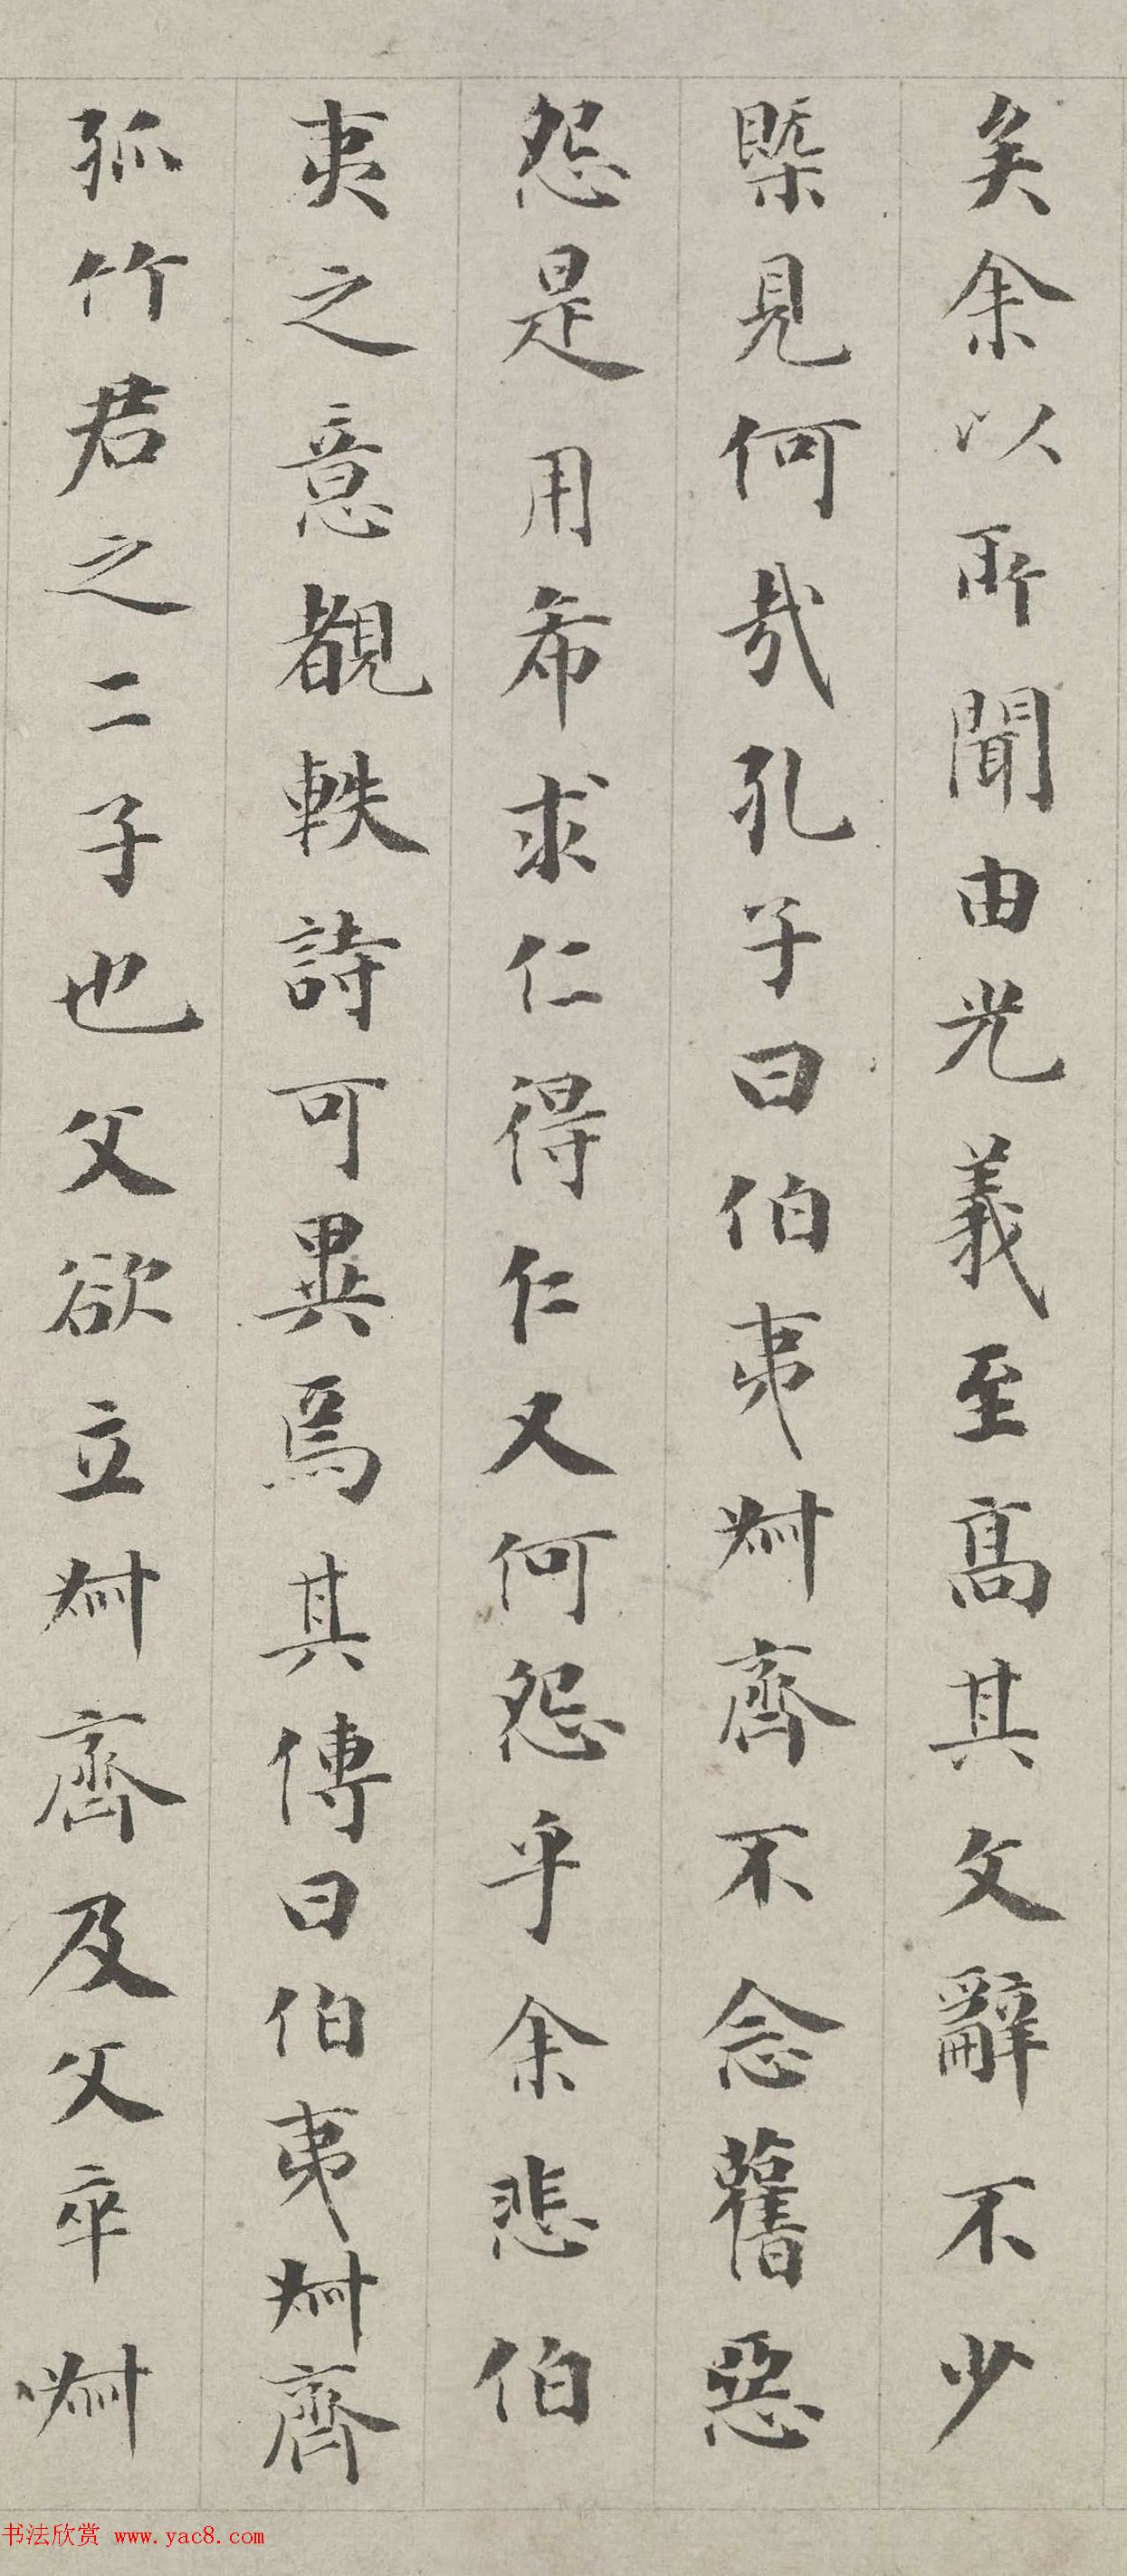 矣余以所聞由光義至高其文辭不少
槩見何哉孔子曰伯夷叔齊不念舊惡
怨是用希求仁得仁又何怨乎余悲伯
夷之意覩軼詩可異焉其傳曰伯夷叔齊
孤竹君之二子也父欲立叔齊及父卒叔
书法欣赏 www.yac8.com